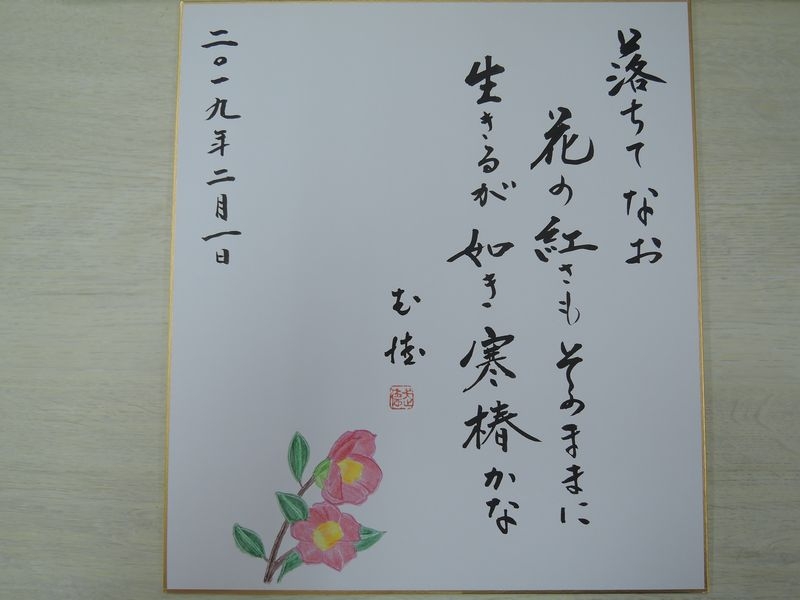 落ちて なお
花の紅さも そのままに
生きるが 如き 寒椿かな
二〇一九年二月一日